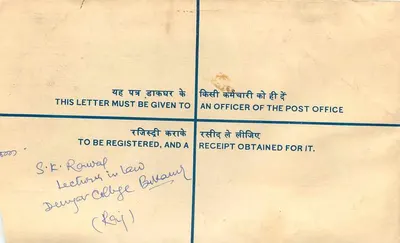 यह पत्र डाकघर के किसी कर्मचारी को ही दें
THIS LETTER MUST BE GIVEN TO AN OFFICER OF THE POST OFFICE
रजिस्ट्री कराके रसीद ले लीजिए
TO BE REGISTERED, AND A RECEIPT OBTAINED FOR IT.
S.K. Rawal
Lecturer in Law
College
(Raj)